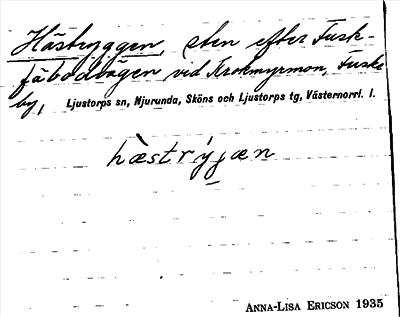 Hästryggen, sten efter Fusk-
fäbodvägen vid Krokmyrmon, Fuske
by, Ljustorps sn, Njurunda, Sköns och Ljustorps tg, Västernorrl. l.
hæstrýjæn
ANNA-LISA ERICSON 1935